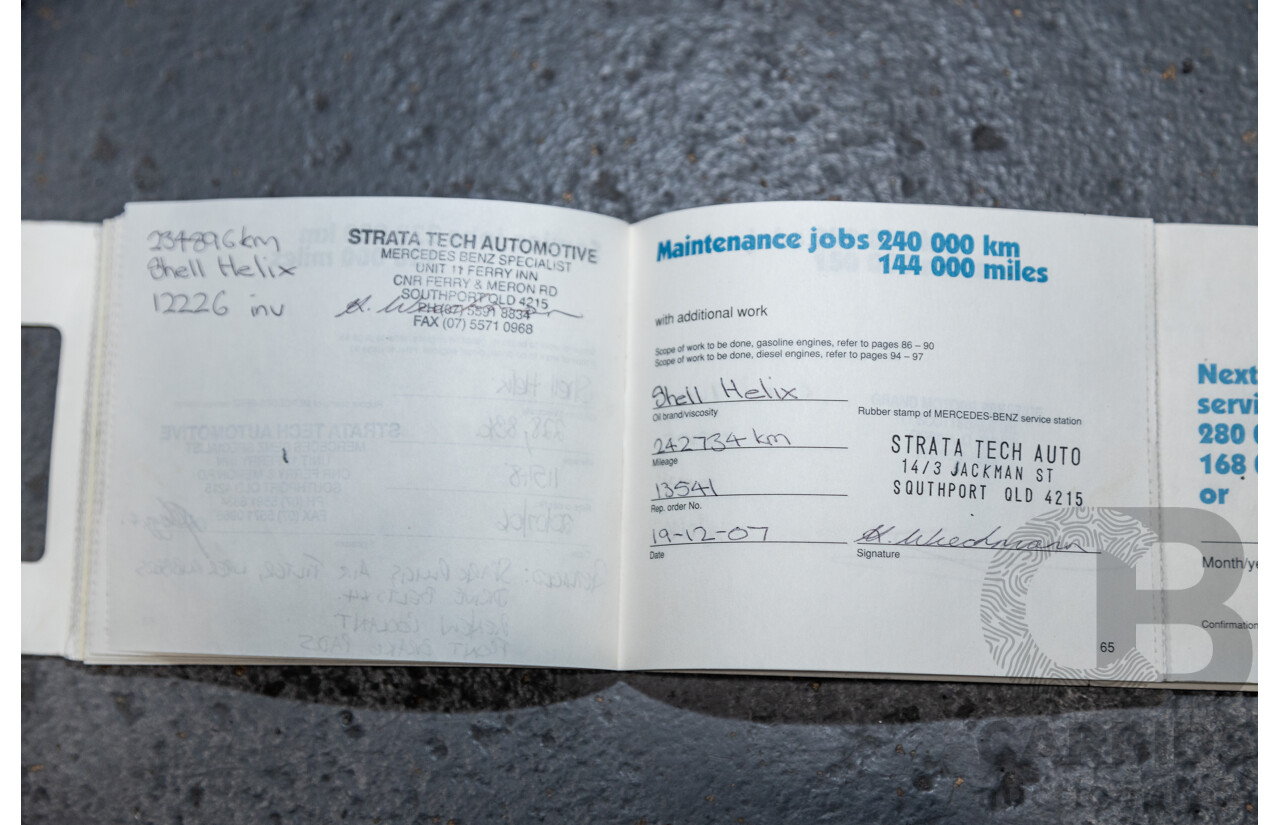 234896km
Shell Helix
12226 inv
STRATA TECH AUTOMOTIVE
MERCEDES BENZ SPECIALIST
UNIT 11 FERRY INN
CNR FERRY & MERON RD
SOUTHPORT QLD 4215
PH (07) 5591 8834
FAX (07) 5571 0968
Maintenance jobs 240 000 km
144 000 miles
with additional work
Scope of work to be done, gasoline engines, refer to pages 86 – 90
Scope of work to be done, diesel engines, refer to pages 94 – 97
Shell Helix
Oil brand/viscosity
242734 km
Mileage
13541
Rep. order No.
19-12-07
Date
Rubber stamp of MERCEDES-BENZ service station
STRATA TECH AUTO
14/3 JACKMAN ST
SOUTHPORT QLD 4215
Signature
65
Next
servi
280 0
168 0
or
Month/ye
Confirmation